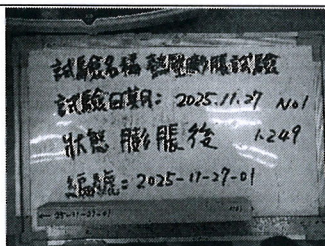 試驗名稱 熱壓膨脹試驗
試驗日期: 2025.11.27 No1
狀態 膨脹後 1.249
編號: 2025-11-27-01